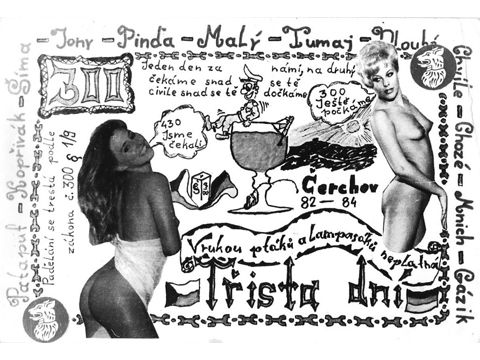 Tony - Pinďa - Malý - Tumaj - Dlouhý
300
Jeden den za
námi, na druhý
čekáme snad
se tě
civile snad se tě
dočkáme
300
Ještě
počkám
430
Jsme
čekali
Čerchov
82 - 84
V rukou ptáků a lampasáků
neplatná
Třista dní
Patapuf - Kopřivák - Šíma
Padělání se trestá podle
zákona č.300 § 1/9
Chazé - Mnich - Gázik